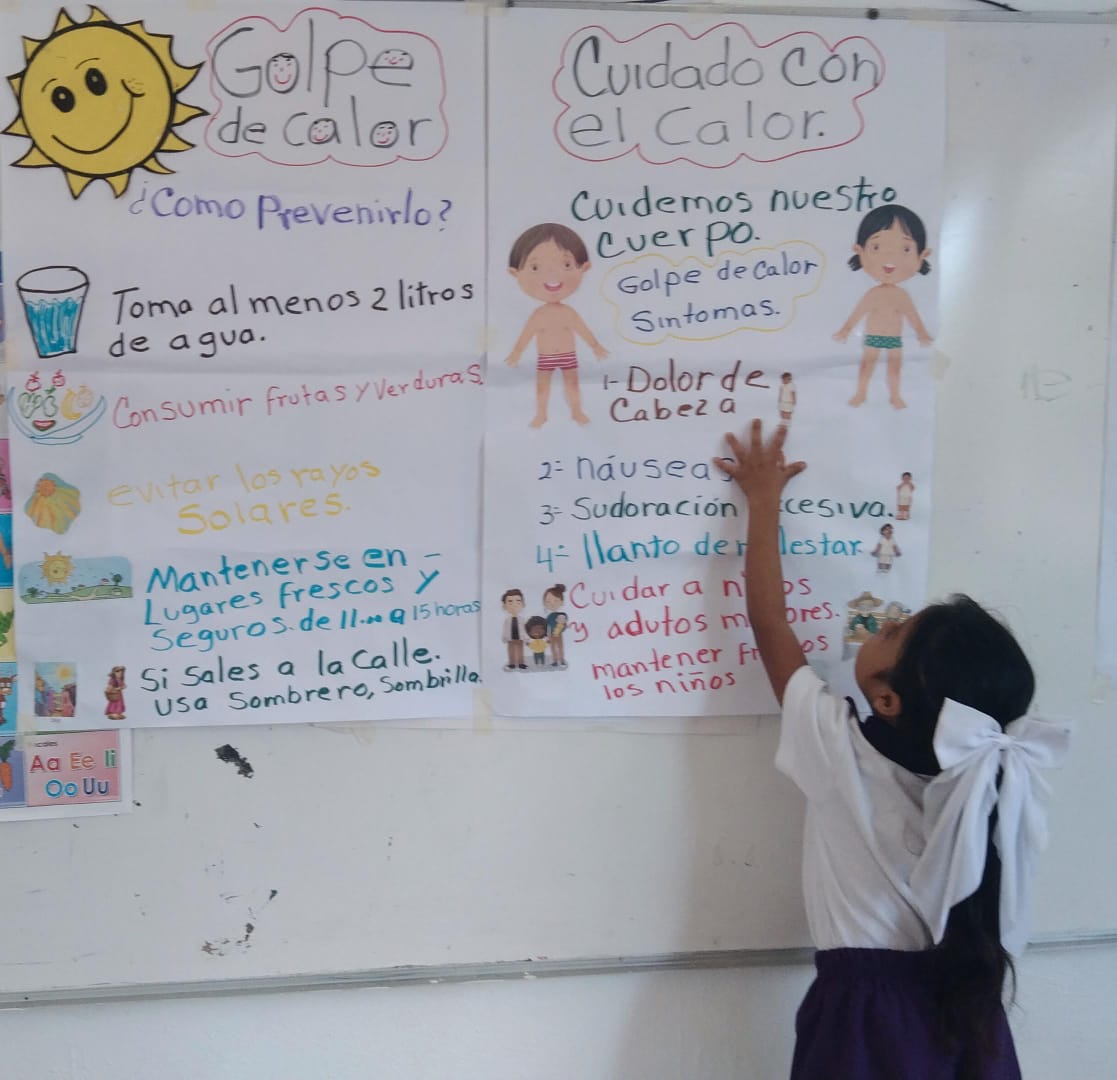 Golpe
de calor
¿Como Prevenirlo?
Toma al menos 2 litros
de agua.
Consumir frutas y Verduras.
evitar los rayos
Solares.
Mantenerse en -
Lugares frescos y
Seguros. de 11 a 15 horas
Si Sales a la Calle.
Usa Sombrero, Sombrilla.
Aa Ee Ii
Oo Uu
Cuidado con
el Calor.
Cuidemos nuestro
Cuerpo.
Golpe de Calor
Sintomas.
1- Dolor de
Cabeza
2= náuseas
3= Sudoración cesiva.
4= llanto de lestar
Cuidar a n os
y adutos m ores.
mantener fr os
los niños